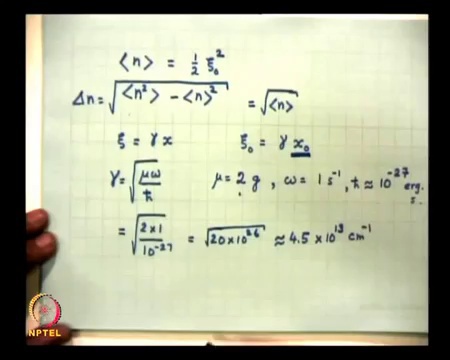 <n> = 1/2 ξ₀²
Δn = √(<n²> − <n>²) = √<n>
ξ = γ x ξ₀ = γ x₀
γ = √(μω/ħ) μ = 2 g , ω = 1 s⁻¹ , ħ ≈ 10⁻²⁷ erg. s.
= √(2×1/10⁻²⁷) = √(20×10²⁶) ≈ 4.5 × 10¹³ cm⁻¹
NPTEL